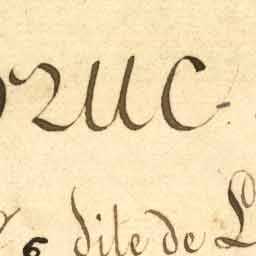 ruc-
6 dite de L